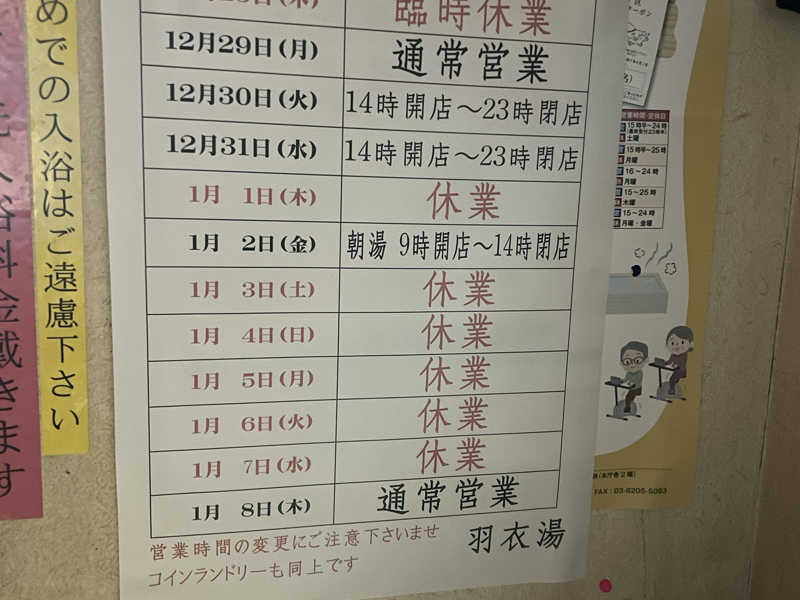 臨時休業
12月29日(月) 通常営業
12月30日(火) 14時開店～23時閉店
12月31日(水) 14時開店～23時閉店
1月 1日(木) 休業
1月 2日(金) 朝湯 9時開店～14時閉店
1月 3日(土) 休業
1月 4日(日) 休業
1月 5日(月) 休業
1月 6日(火) 休業
1月 7日(水) 休業
1月 8日(木) 通常営業
営業時間の変更にご注意下さいませ
コインランドリーも同上です
羽衣湯
めでの入浴はご遠慮下さい
料金戴きます
営業時間・定休日
15時半～24時
土曜
15時半～25時
月曜
16～24時
月曜
15～25時
木曜
15～24時
月曜・金曜
FAX：03-6205-5083